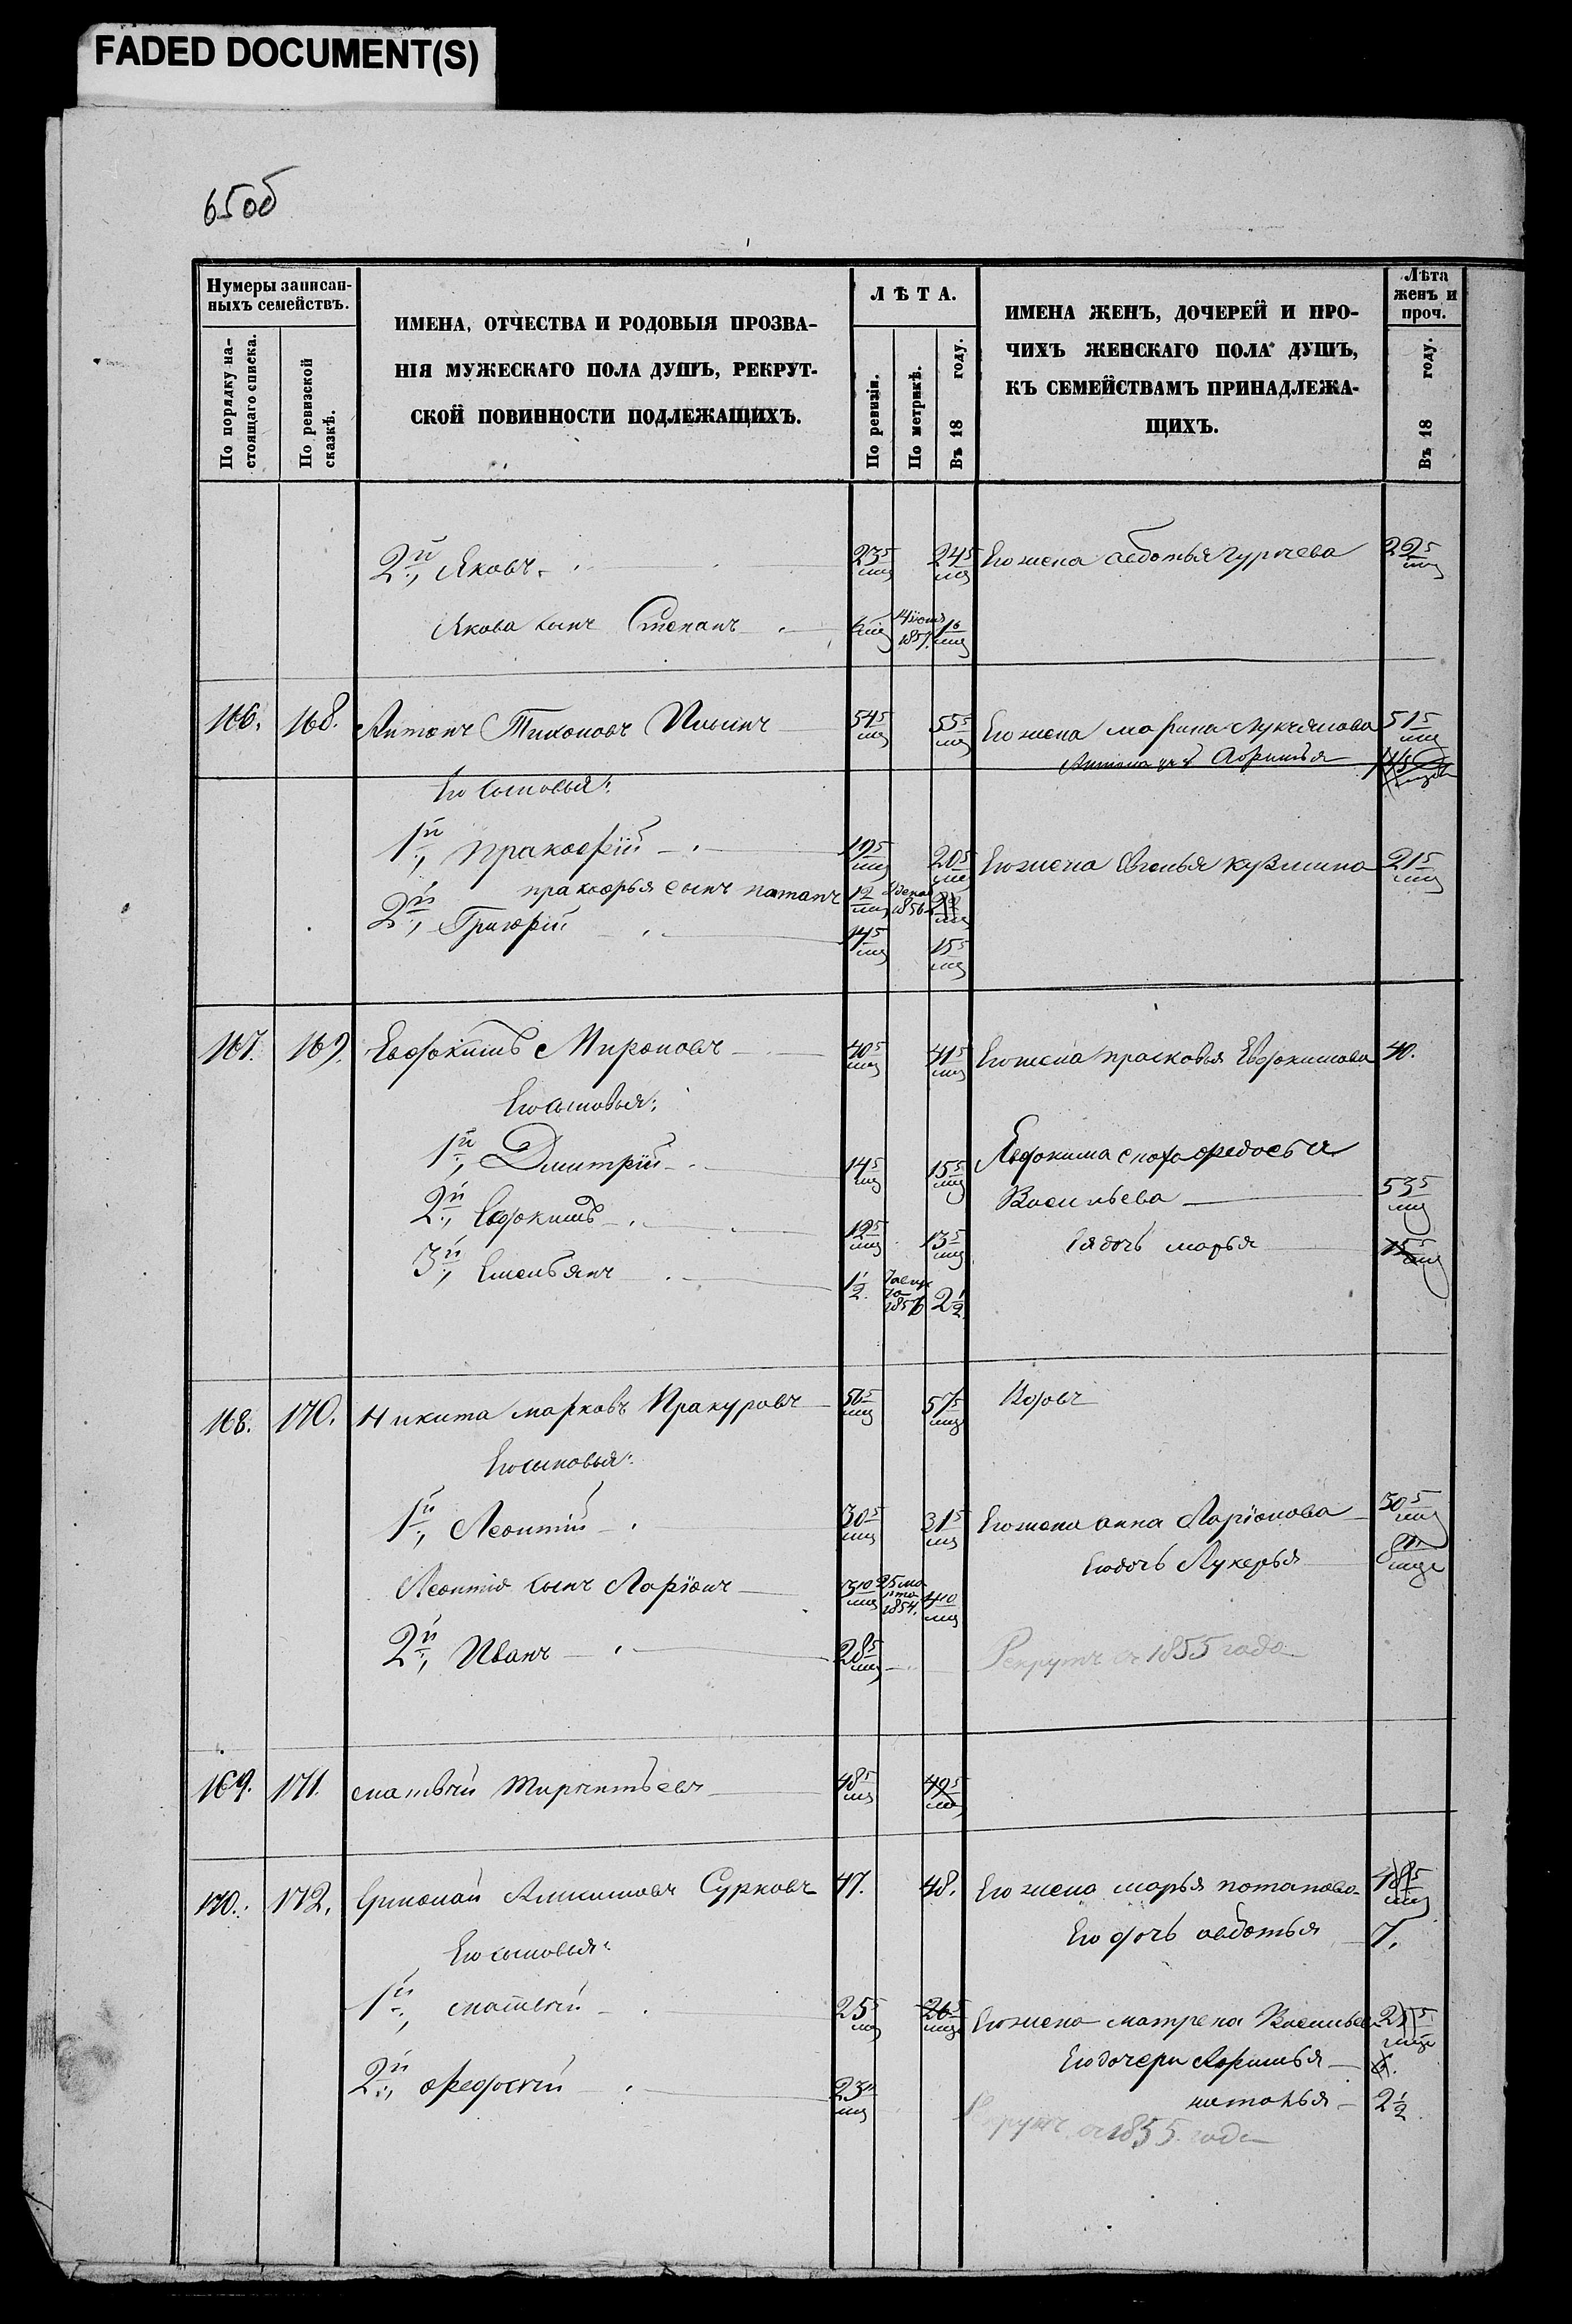 FADED DOCUMENT(S)
65об
Нумеры записан-
ныхъ семействъ.
По порядку на-
стоящаго списка.
По ревизской
сказкѣ.
ИМЕНА, ОТЧЕСТВА И РОДОВЫЯ ПРОЗВА-
НІЯ МУЖЕСКАГО ПОЛА ДУШЪ, РЕКРУТ-
СКОЙ ПОВИННОСТИ ПОДЛЕЖАЩИХЪ.
ЛѢТА.
По ревизіи.
По метрикѣ.
Въ 18 году.
ИМЕНА ЖЕНЪ, ДОЧЕРЕЙ И ПРО-
ЧИХЪ ЖЕНСКАГО ПОЛА ДУШЪ,
КЪ СЕМЕЙСТВАМЪ ПРИНАДЛЕЖА-
ЩИХЪ.
Лѣта
женъ и
проч.
Въ 18 году.
2й, Яковъ 23 5/мц 24 5/мц Его жена авдотья гурьева 22 5/мц
Якова сынъ Степанъ 1857.
166. 168. Антонъ Тихоновъ Ильинъ 54 5/мц 55 5/мц Его жена марина Лукьянова 51 5/мц
Антона Афимья
Его сыновья:
1й, пракофій 19 5/мц 20 5/мц Его жена Евгенья кузмина 21 5/мц
пракофья сынъ патапъ 1856
2й, Григорій 14 5/мц 15 5/мц
167. 169. Евдокимъ Мироновъ 40 5/мц 41 5/мц Его жена прасковья Евдокимова 40.
Его сыновья:
1й, Дмитрій 14 5/мц 15 5/мц Явдокима сноха федосья
Васильева 53 5/мц
2й, Евдокимъ 12 5/мц 13 5/мц Ея дочь марья 15 5/мц
3й, Емельянъ 1 1/2. 1856 2 1/2.
168. 170. Никита марковъ Пракуровъ 56 5/мц 57 5/мц Вдовъ
Его сыновья:
1й, Леонтій 30 5/мц 31 5/мц Его жена анна Ларіонова 30 5/мц
Его дочь Лукерья
Леонтія сынъ Ларіонъ 3 10/мц 25 марта 1854. 4 10/мц
2й, Иванъ 28 5/мц Рекрутъ съ 1855 года
169. 171. матвѣй 48 5/мц 49 5/мц
170. 172. Сурковъ 47. 48. Его жена марья потапова 48 5/мц
Его дочь авдотья 7.
Его сыновья:
1й, матвѣй 25 5/мц 26 5/мц Его жена матрена Васильева
Его дочери Афимья
2й, федосѣй 23 наталья 2 1/2
Рекрутъ съ 1855 года